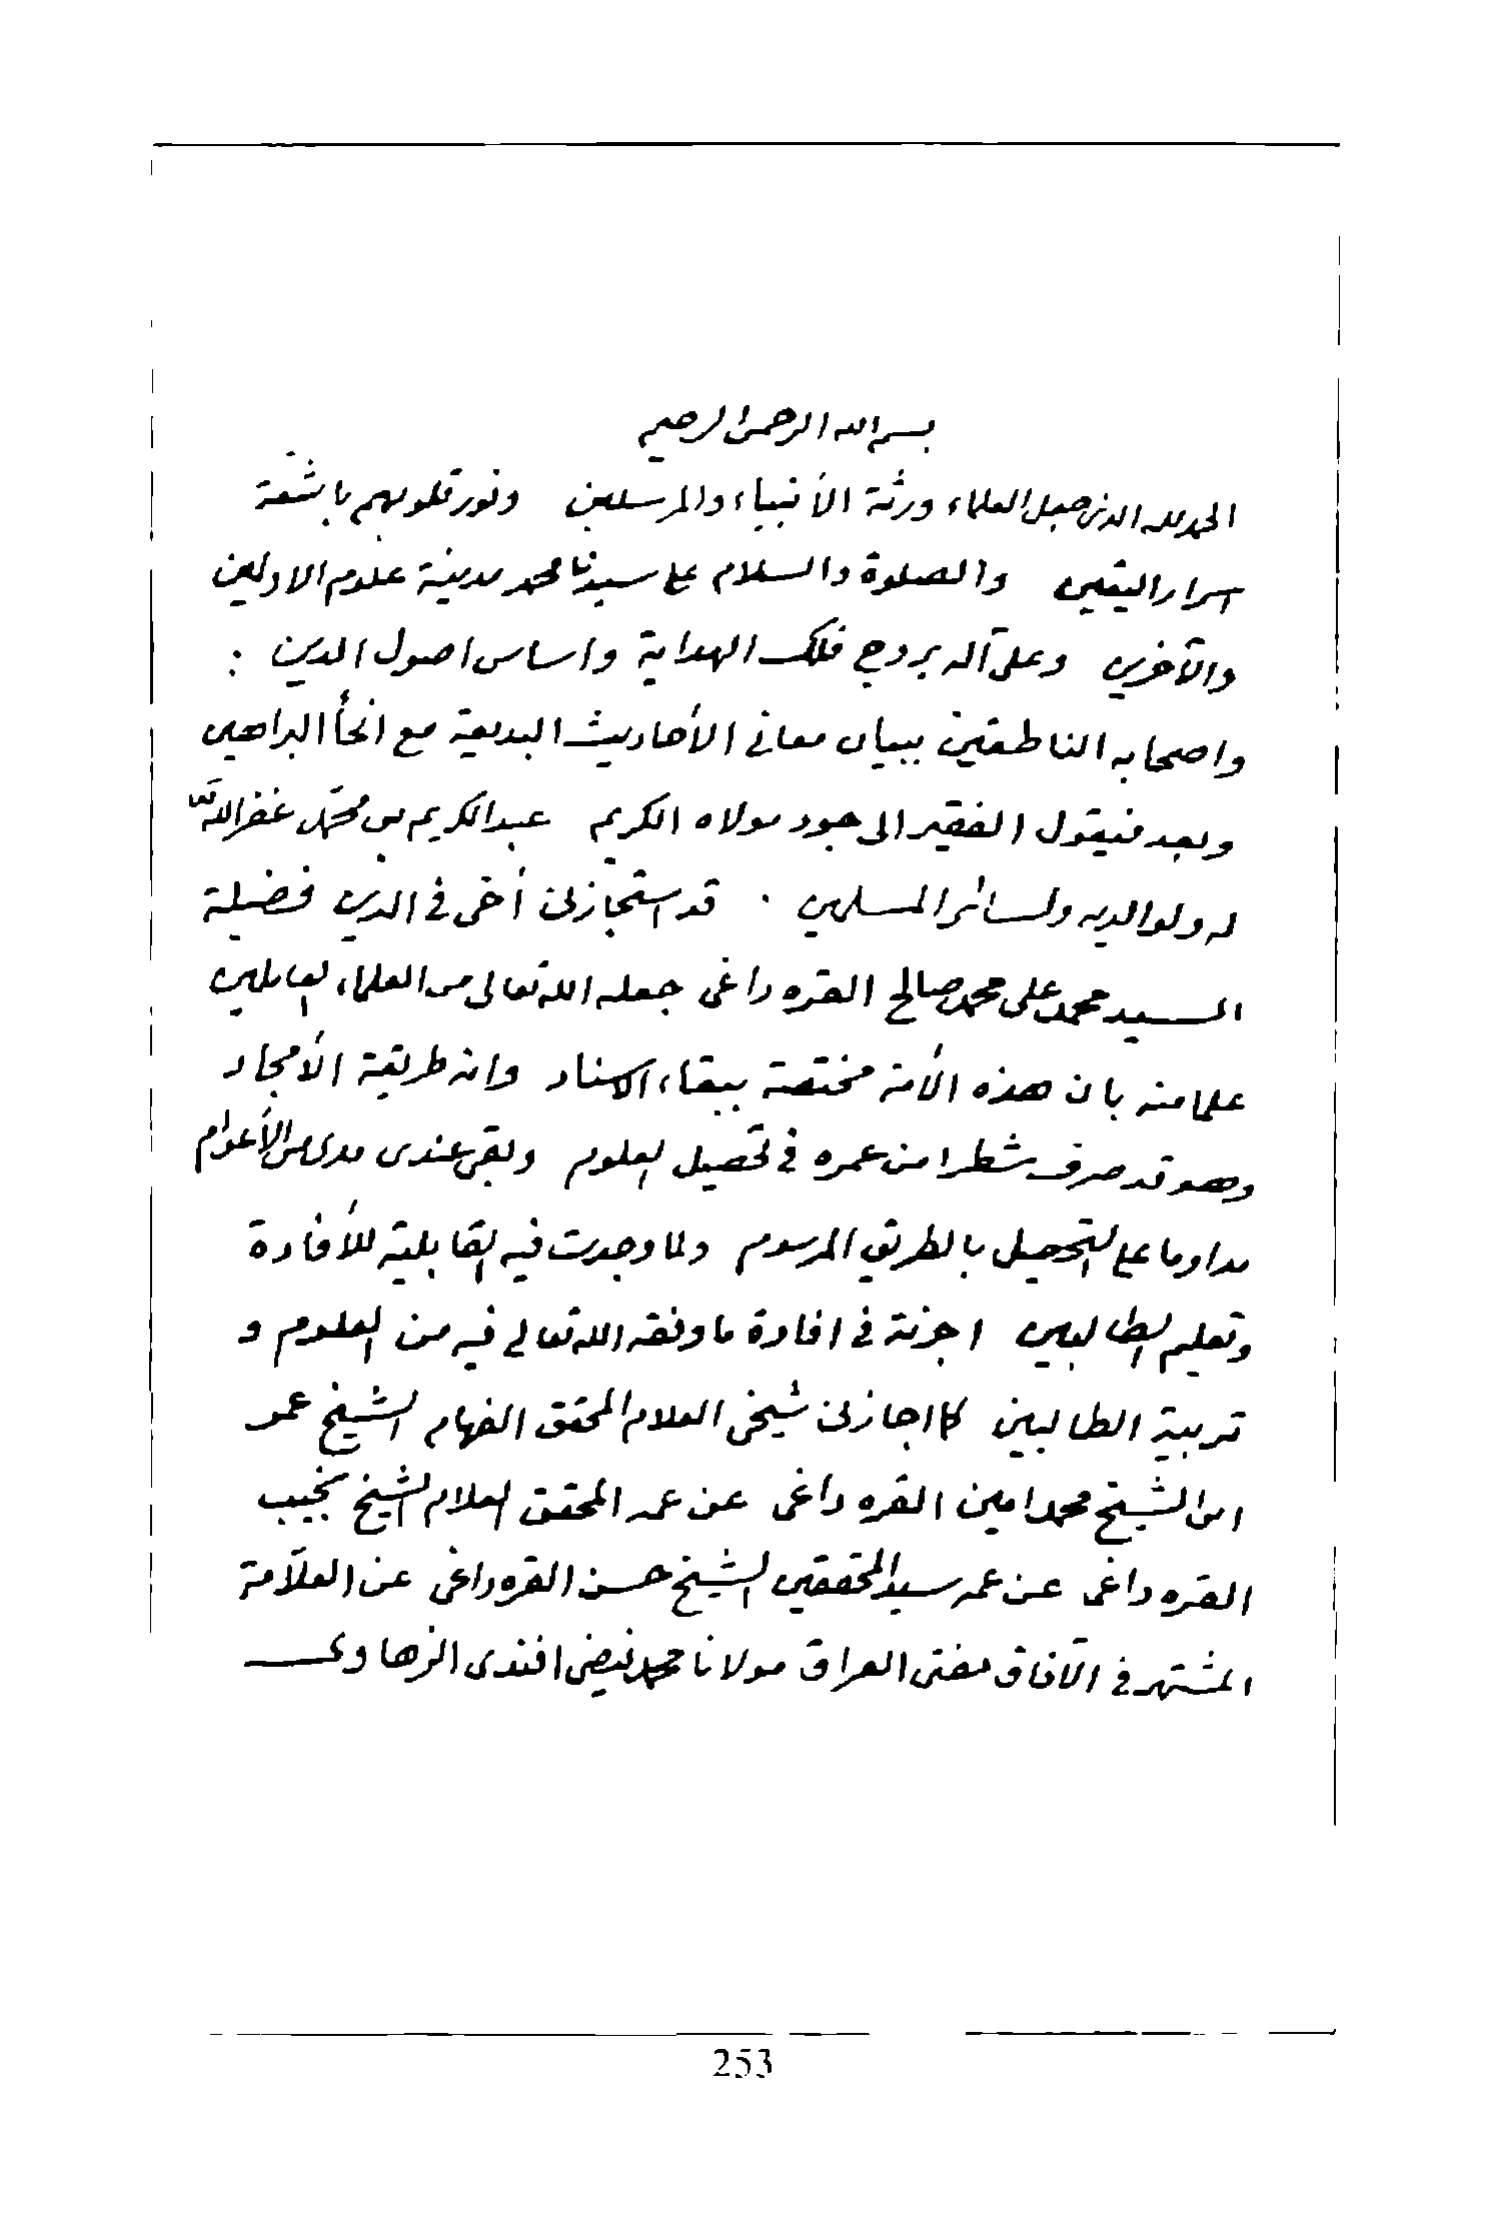 بسم الله الرحمن الرحيم
الحمد لله الذى جعل العلماء ورثة الأنبياء والمرسلين ونور قلوبهم باشعة
اسرار اليقين والصلوة والسلام على سيدنا محمد مدينة علوم الاولين
والآخرين وعلى آله بروج فلك الهداية واساس اصول الدين :
واصحابه الناطقين ببيان معاني الأحاديث البديعة مع انحأ البراهين
وبعد فيقول الفقير الى جود مولاه الكريم عبدالكريم بن محمد غفر الله
له ولوالديه ولسائر المسلمين . قد استجازنى أخى في الدين فضيلة
السيد محمد على محمد صالح القره داغى جعله الله تعالى من العلماء العاملين
علما منه بان هذه الأمة مختصة ببقاء الاسناد وانه طريقة الأمجاد
وهو قد صرف شطرا من عمره في تحصيل العلوم وبقى عندى مدى من الأعوام
مداوما على التحصيل بالطريق المرسوم ولما وجدت فيه القابلية للأفادة
وتعليم الطالبين اجزته في افادة ما وفقه الله تعالى فيه من العلوم و
تربية الطالبين كما اجازنى شيخى العلام المحقق الفهام الشيخ عمر
ابن الشيخ محمد امين القره داغى عن عمه المحقق العلام الشيخ نجيب
القره داغى عن عمه سيد المحققين الشيخ حسن القره داغى عن العلّامة
المشتهر في الآفاق مفتى العراق مولانا محمد فيضى افندى الزهاوى
253